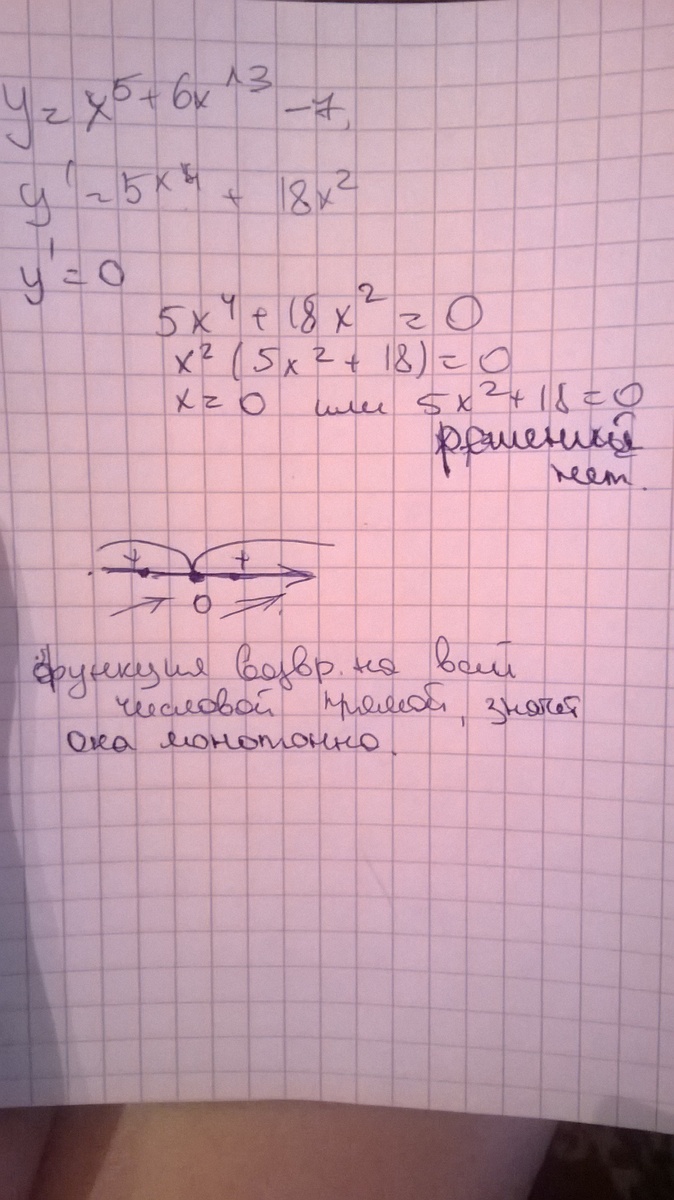 y = x⁵ + 6x^3 - 7,
y' = 5x⁴ + 18x²
y' = 0
5x⁴ + 18x² = 0
x² (5x² + 18) = 0
x = 0 или 5x² + 18 = 0
решений
нет.
+ +
0
функция возвр. на всей
числовой прямой, значит
она монотонно.